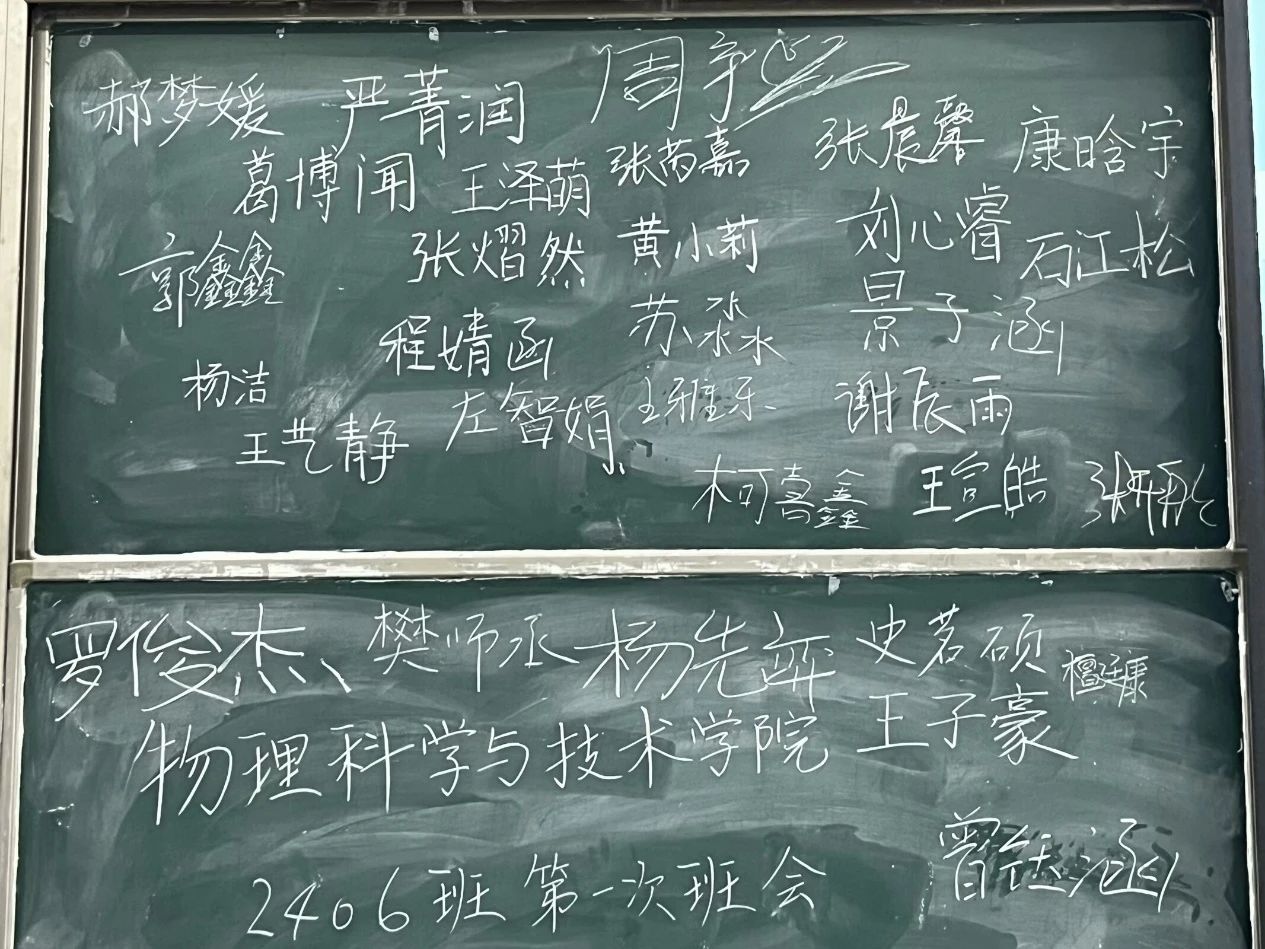 郝梦媛 严菁润 周宇
葛博闻 王泽萌 张芮嘉 张晨馨 康晗宇
郭鑫鑫 张熠然 黄小莉 刘心睿 石江松
程婧函 苏淼 景子涵
杨洁 左智娟 王雅乐 谢辰雨
王艺静 柯嘉鑫 王宣皓 张
罗俊杰 樊师丞 杨先 史茗硕
物理科学与技术学院 王子豪 檀廷康
曾钰涵
2406班第一次班会